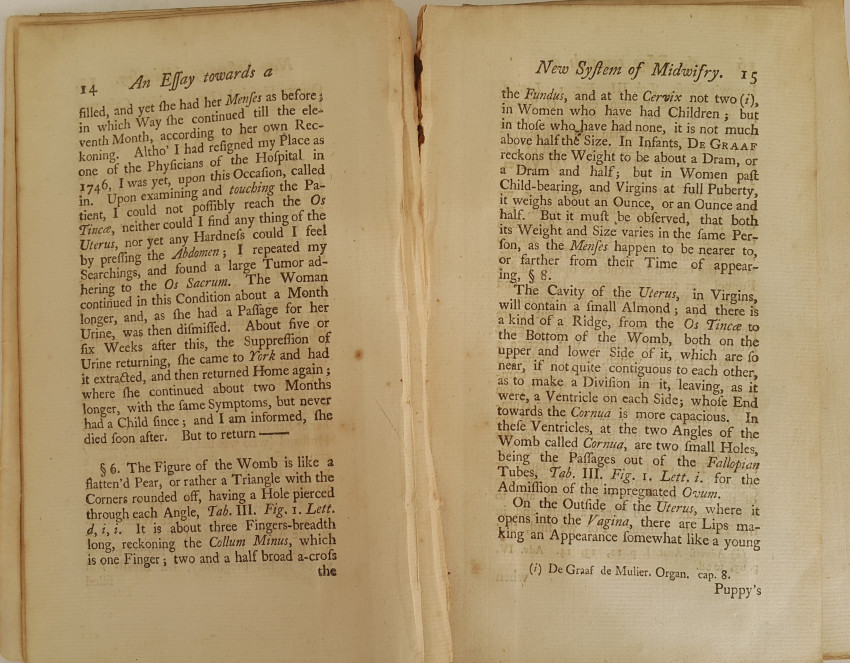 14 An Eſſay towards a
filled, and yet ſhe had her Menſes as before;
in which Way ſhe continued till the ele-
venth Month, according to her own Rec-
koning. Altho' I had reſigned my Place as
one of the Phyſicians of the Hoſpital in
1746, I was yet, upon this Occaſion, called
in. Upon examining and touching the Pa-
tient, I could not poſſibly reach the Os
Tincæ, neither could I find any thing of the
Uterus, nor yet any Hardneſs could I feel
by preſſing the Abdomen; I repeated my
Searchings, and found a large Tumor ad-
hering to the Os Sacrum. The Woman
continued in this Condition about a Month
longer, and, as ſhe had a Paſſage for her
Urine, was then diſmiſſed. About five or
ſix Weeks after this, the Suppreſſion of
Urine returning, ſhe came to York and had
it extracted, and then returned Home again;
where ſhe continued about two Months
longer, with the ſame Symptoms, but never
had a Child ſince; and I am informed, ſhe
died ſoon after. But to return ——
§ 6. The Figure of the Womb is like a
flatten'd Pear, or rather a Triangle with the
Corners rounded off, having a Hole pierced
through each Angle, Tab. III. Fig. 1. Lett.
d, i, i. It is about three Fingers-breadth
long, reckoning the Collum Minus, which
is one Finger; two and a half broad a-croſs
the
New Syſtem of Midwifry. 15
the Fundus, and at the Cervix not two (i),
in Women who have had Children; but
in thoſe who have had none, it is not much
above half the Size. In Infants, DE GRAAF
reckons the Weight to be about a Dram, or
a Dram and half; but in Women paſt
Child-bearing, and Virgins at full Puberty,
it weighs about an Ounce, or an Ounce and
half. But it muſt be obſerved, that both
its Weight and Size varies in the ſame Per-
ſon, as the Menſes happen to be nearer to,
or farther from their Time of appear-
ing, § 8.
The Cavity of the Uterus, in Virgins,
will contain a ſmall Almond; and there is
a kind of a Ridge, from the Os Tincæ to
the Bottom of the Womb, both on the
upper and lower Side of it, which are ſo
near, if not quite contiguous to each other,
as to make a Diviſion in it, leaving, as it
were, a Ventricle on each Side; whoſe End
towards the Cornua is more capacious. In
theſe Ventricles, at the two Angles of the
Womb called Cornua, are two ſmall Holes,
being the Paſſages out of the Fallopian
Tubes, Tab. III. Fig. 1. Lett. i. for the
Admiſſion of the impregnated Ovum.
On the Outſide of the Uterus, where it
opens into the Vagina, there are Lips ma-
king an Appearance ſomewhat like a young
(i) De Graaf de Mulier. Organ. cap. 8.
Puppy's